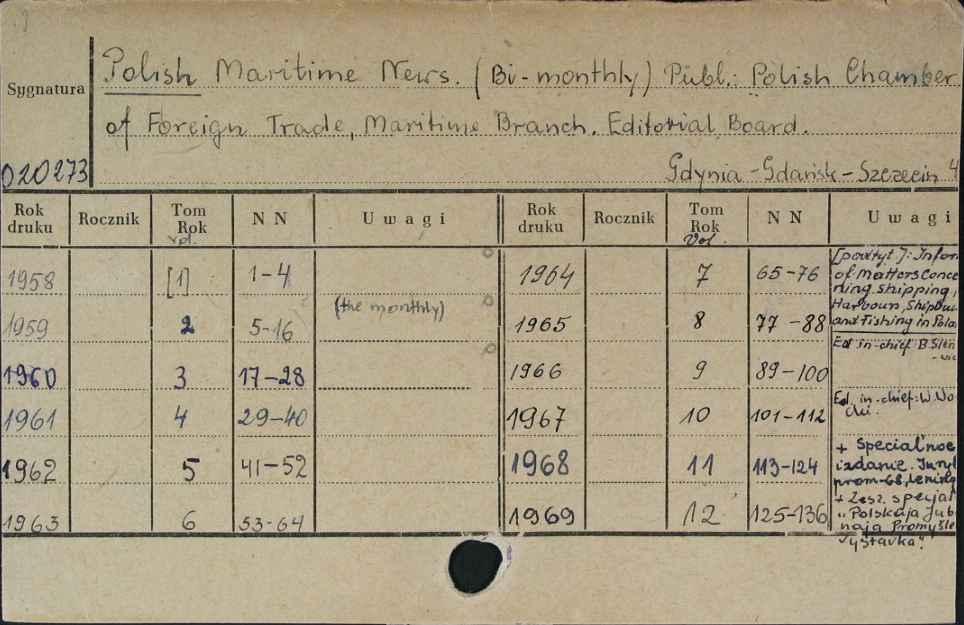 Polish Maritime News. (Bi-monthly) Publ.: Polish Chamber
Sygnatura
of Foreign Trade, Maritime Branch. Editorial Board.
020273
Gdynia-Gdańsk-Szczecin 4
Rok druku Rocznik Tom Rok Vol. N N Uwagi Rok druku Rocznik Tom Rok Vol. N N Uwagi
1958 [1] 1-4 1964 7 65-76
[podtyt.]: Infor
of Matters Conce
ning, Shipping,
Harbour, Shipbui
and Fishing in Pola
1959 2 5-16 (the monthly) 1965 8 77-88
Ed in-chief B.
1960 3 17-28 1966 9 89-100
1961 4 29-40 1967 10 101-112
Ed. in-chief: W.
1962 5 41-52 1968 11 113-124
+ Special'noe
izdanie.
prom-68,
1963 6 53-64 1969 12 125-136
+ Zesz. specjal
"Polskaja Jub
naja Promyšle
vystavka".